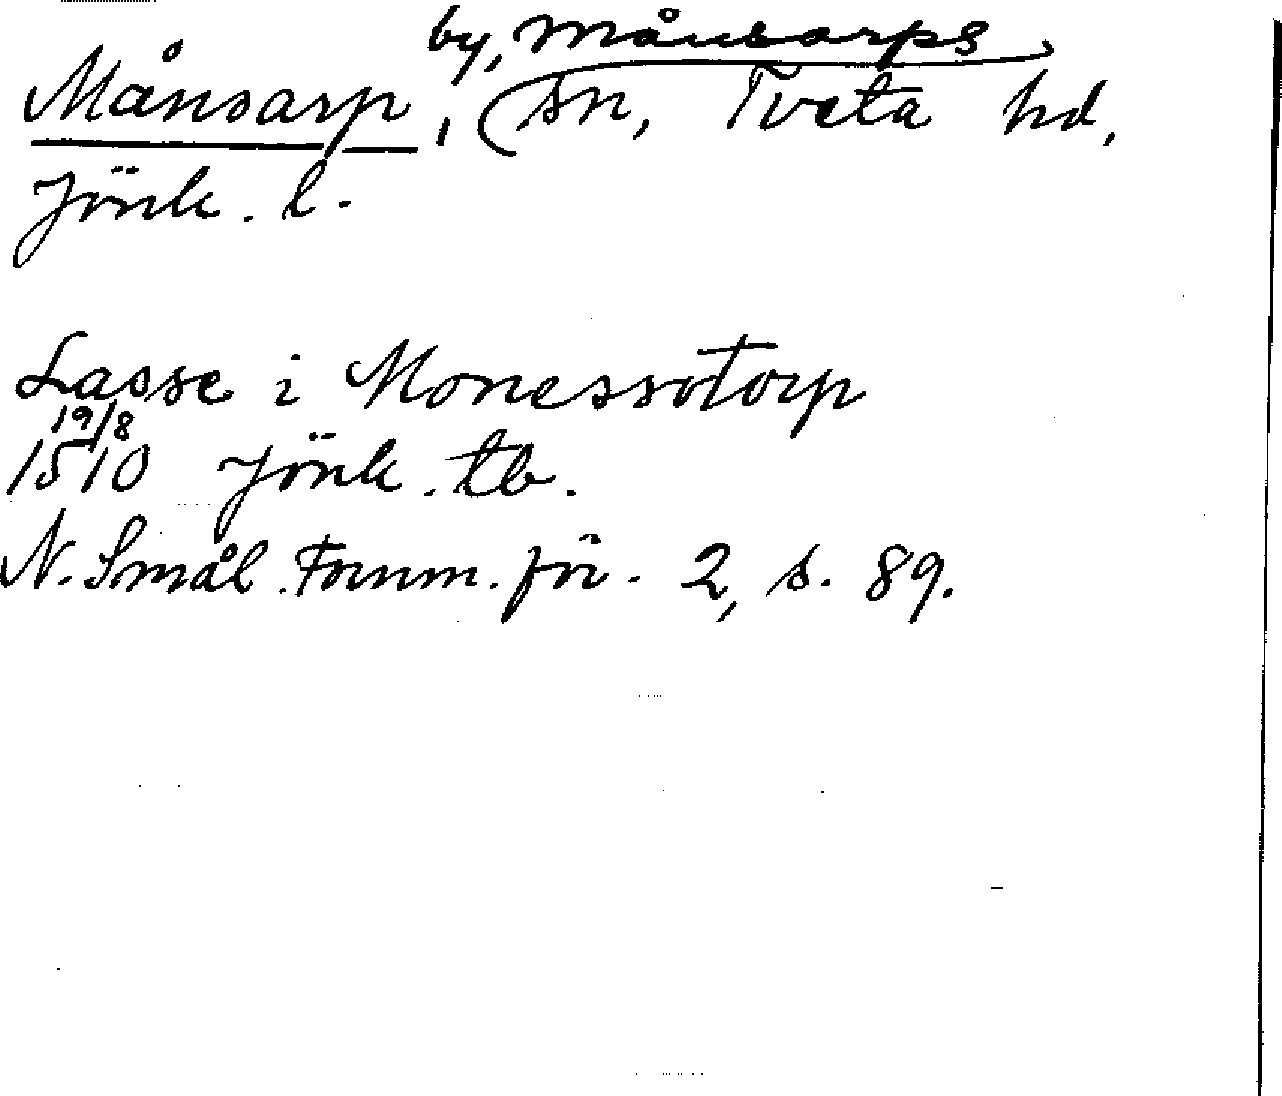 by, Månsarps
Månsarp, sn, Tveta hd,
Jönk. l.
Lasse i Monessotorp
19/8
1510 Jönk. tb.
N. Smål. Fornm. för. 2, s. 89.